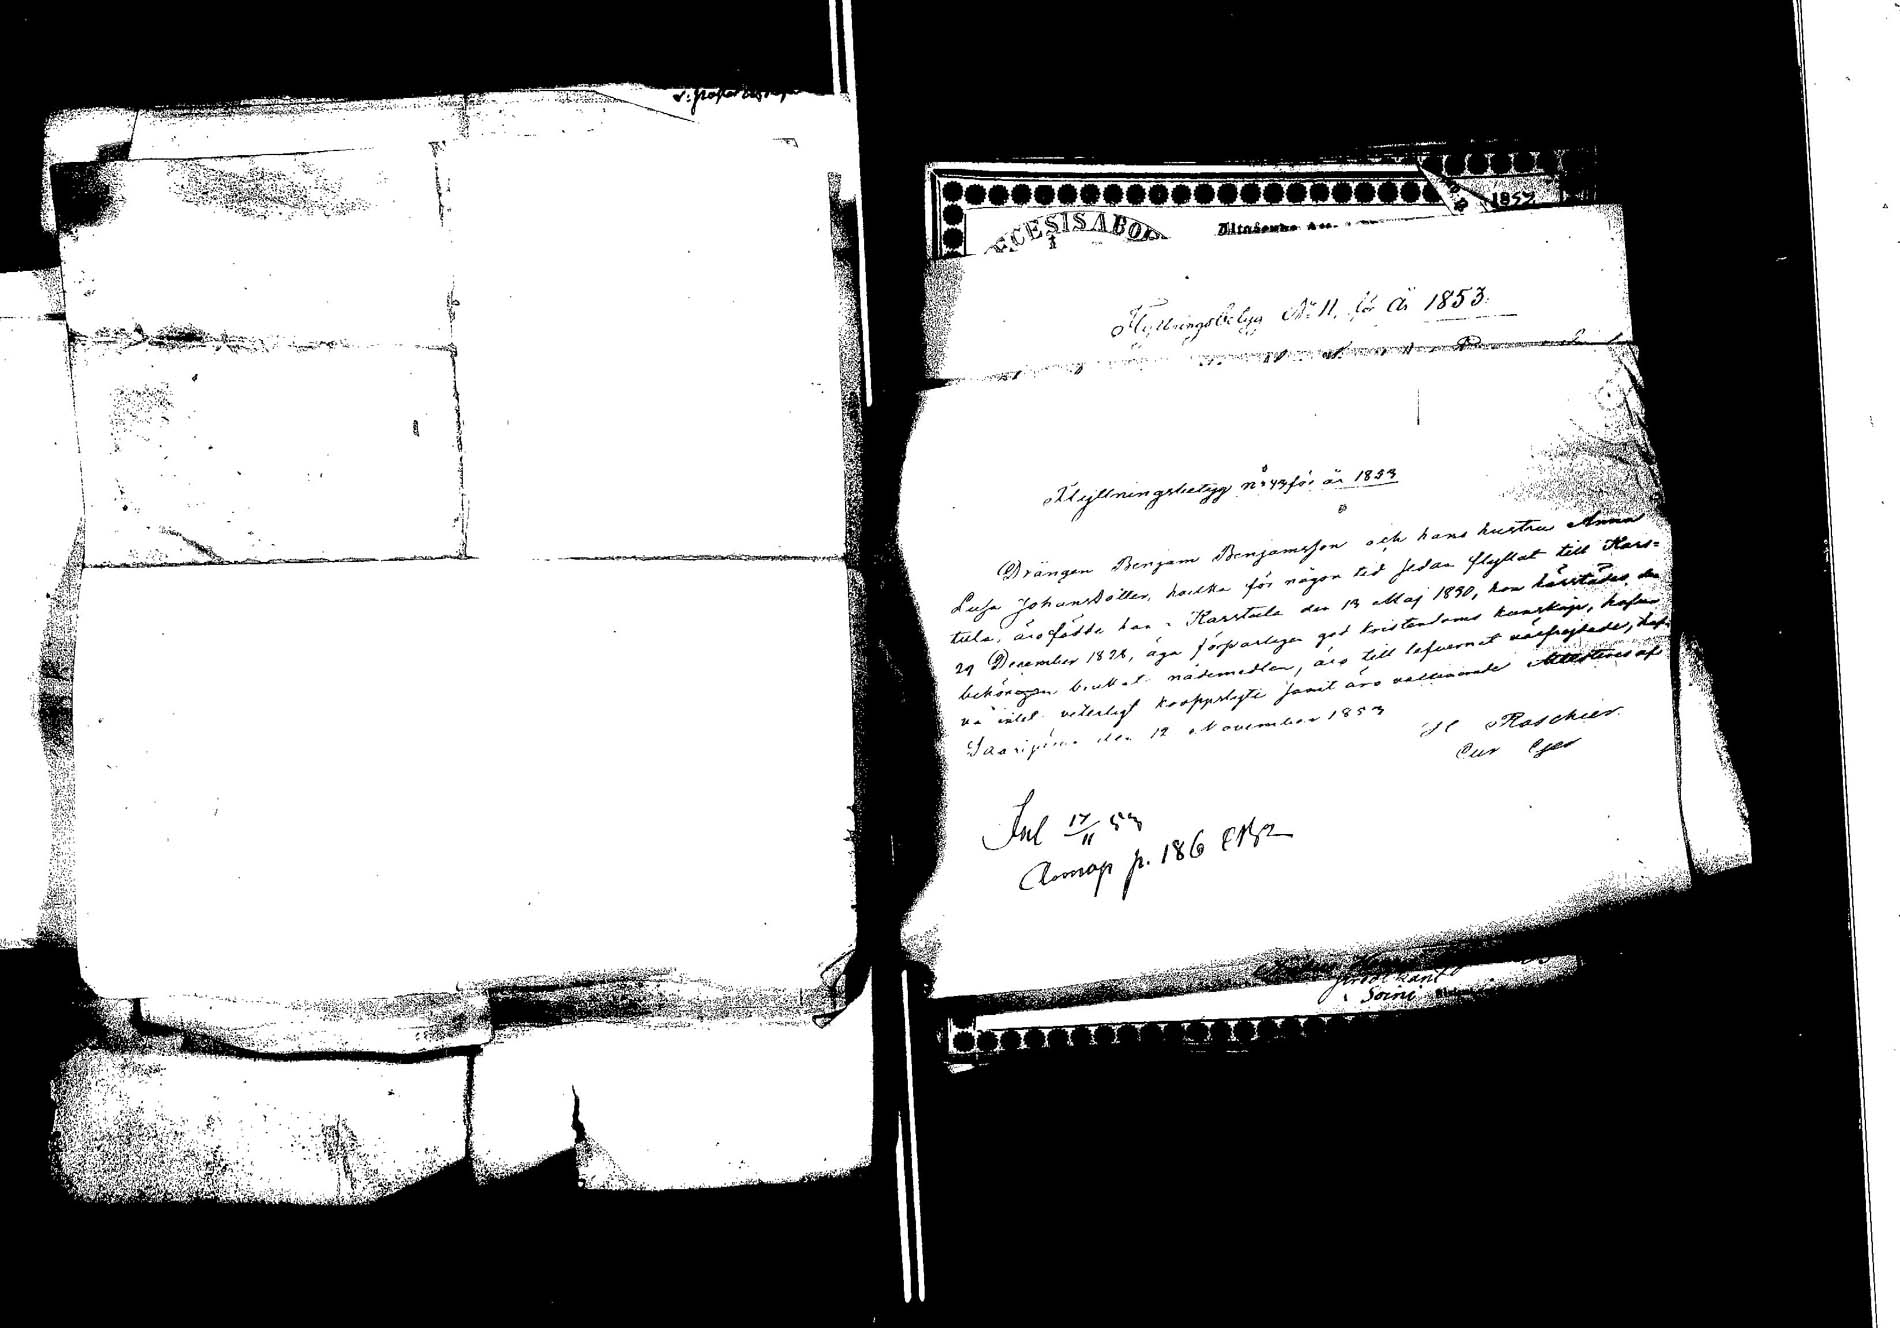 1853
ECESISABO
Flyttningsbetyg No 11, för år 1853.
Flyttningsbetyg no 43 för år 1853
Drängen Benjam Benjamsson och hans hustru Anna
Lusa Johansdotter, hvilka för någon tid sedan flyttat till Kars=
tula, äro födde han i Karstula den 13 Maj 1830, hon härstädes den
29 December 1828, äga försvarligen god kristendoms kunskap, hafva
behörigen brukat nådemedlen, äro till lefvernet välfrejdade, haf=
va intet veterligt koppslagte samt äro vaccinerade Attesteras af
Saarijärvi den 12 November 1853
H Roschier.
Cur Ger
Inl 17/11 53
p. 186
Soini